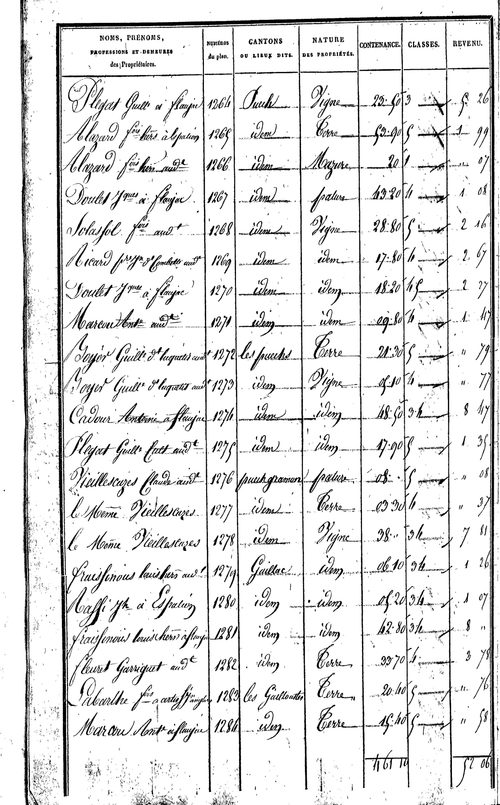 NOMS, PRÉNOMS, PROFESSIONS ET DEMEURES des Propriétaires. NUMÉROS du plan. CANTONS OU LIEUX DITS. NATURE DES PROPRIÉTÉS. CONTENANCE. CLASSES. REVENU.
Pleyat Guill.e à flaujac 1264 Puech Vigne 23.50 3 5. 26
Alazard f.ois hers à Espalion 1265 idem Terre 53.90 5 1 99
Alazard f.ois hers aud.t 1266 idem Mazure 20 1 " 07
Doulet J.ques à flaujac 1267 idem pature 43.20 4 1 08
Solassol f.ois aud.t 1268 idem Vigne 28.80 5 2 16
Ricard aud.t 1269 idem idem 17.80 4 2. 67
Doulet J.ques à flaujac 1270 idem idem 18.20 45 2 27
Marcou Ant.e aud.t 1271 idem idem 09.80 4 1 47
Boyer Guill.e aud.t 1272 les puechs Terre 21.30 5 " 79
Boyer Guill.e aud.t 1273 idem Vigne 05.10 4 " 77
Cadour Antoine à flaujac 1274 idem idem 48.50 3.4 8 47
Pleyat Guill.e aud.t 1275 idem idem 17.90 5 1 35
Vieillescazes Claude aud.t 1276 puechgramon pature 08 5 " 08
le Meme Vieillescazes 1277 idem Terre 03.30 4 " 37
le Meme Vieillescazes 1278 idem Vigne 38 34 7 81
fraissinous louis hers aud.t 1279 Guillac idem 06.10 34 1 26
Raffi J.h à Espalion 1280 idem idem 05.20 34 1 07
fraissinous louis hers à flaujac 1281 idem idem 42.80 34 8 "
fleuret Garriguet aud.t 1282 idem Terre 33.70 4 3 78
Labarthe f.ois 1283 les Guilloutis Terre 20.40 5 " 76
Marcou Ant.e à flaujac 1284 idem Terre 15.40 5 " 58
461 10 52 06